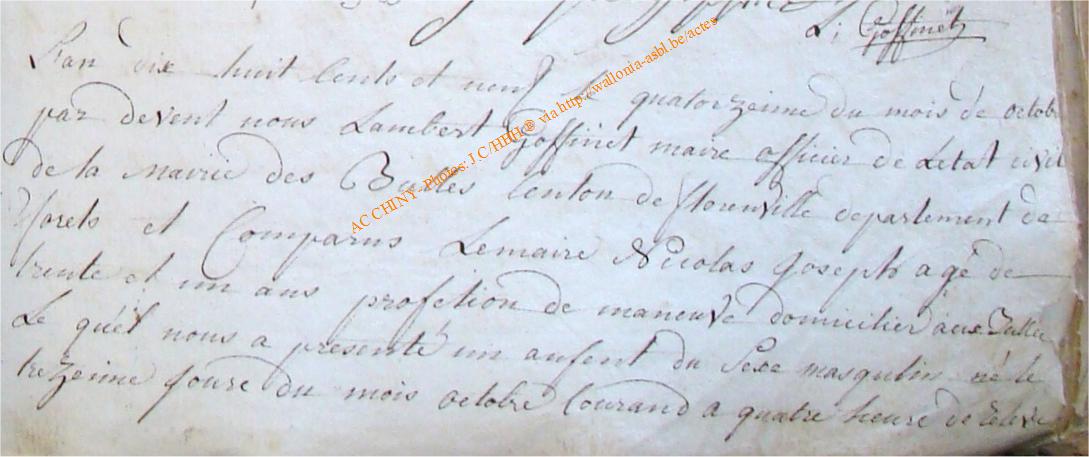 L; Goffinet
L'an dix huit Cents et neuf le quatorzeinne du mois de octobre
par devent nous Lambert Goffinet maire officier de Letat civil
de la Mairie des Bulles Centon de florenville departement de
forets et Comparus Lemaire Nicolas Joseph agé de
trente et un ans profetion de maneuve domicilier aux Bulles
Le quel nous a presenté un anfent du Sexe masqulin né le
treZeinne Joure du mois octobre Courand a quatre heure de
AC CHINY - Photos: J.C/HHH ® via http://wallonia-asbl.be/actes